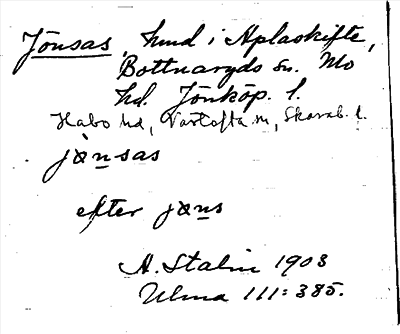 Jönsas, hmd i Aplaskifte,
Bottnaryds sn. Mo
hd. Jönköp. l.
Habo hd, Vartofta m, Skarab. l.
jònsas
efter jons
A. Stalin 1903
Ulma 111:385.